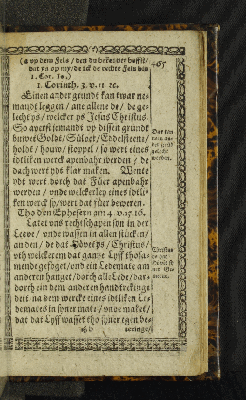 (a vp dem Fels / den du
1. Cor. 10.)
465
1. Corinth. 3. v. 11 ꝛc.
Einen ander grundt kan twar ne-
mandt leggen / ane allene de / de ge-
lecht ys / welcker ys Jesus Christus.
So auerst jemandt vp dissen grundt
buwet Goldt / Süluer / Eddelsteene /
holdt / houw / stoppel / so wert eines
idtliken werck apenbahr werden / de
dach wert ydt klar maken. Wente
ydt wert dorch dat Füer apenbahr
werden / vnde welckerley eines idtli-
ken werck sy / wert dat füer beweren.
Tho den Ephesern am 4. v. 15. 16.
Latet vns rechtschapen syn in der
Leeue / vnde wassen in allen stücken /
an den / de dat Hövet ys / Christus /
vth welckerem dat gantze Lyff thosa-
mende gefoget / vnd ein Ledemate am
anderen hanget / dorch alle Lede / dar-
dorch ein dem anderen handtrekinge
deit na dem wercke eines idtliken Le-
demates in syner mate / vnde maket /
dat dat Lyff wasset tho syner egen be-
teringe /